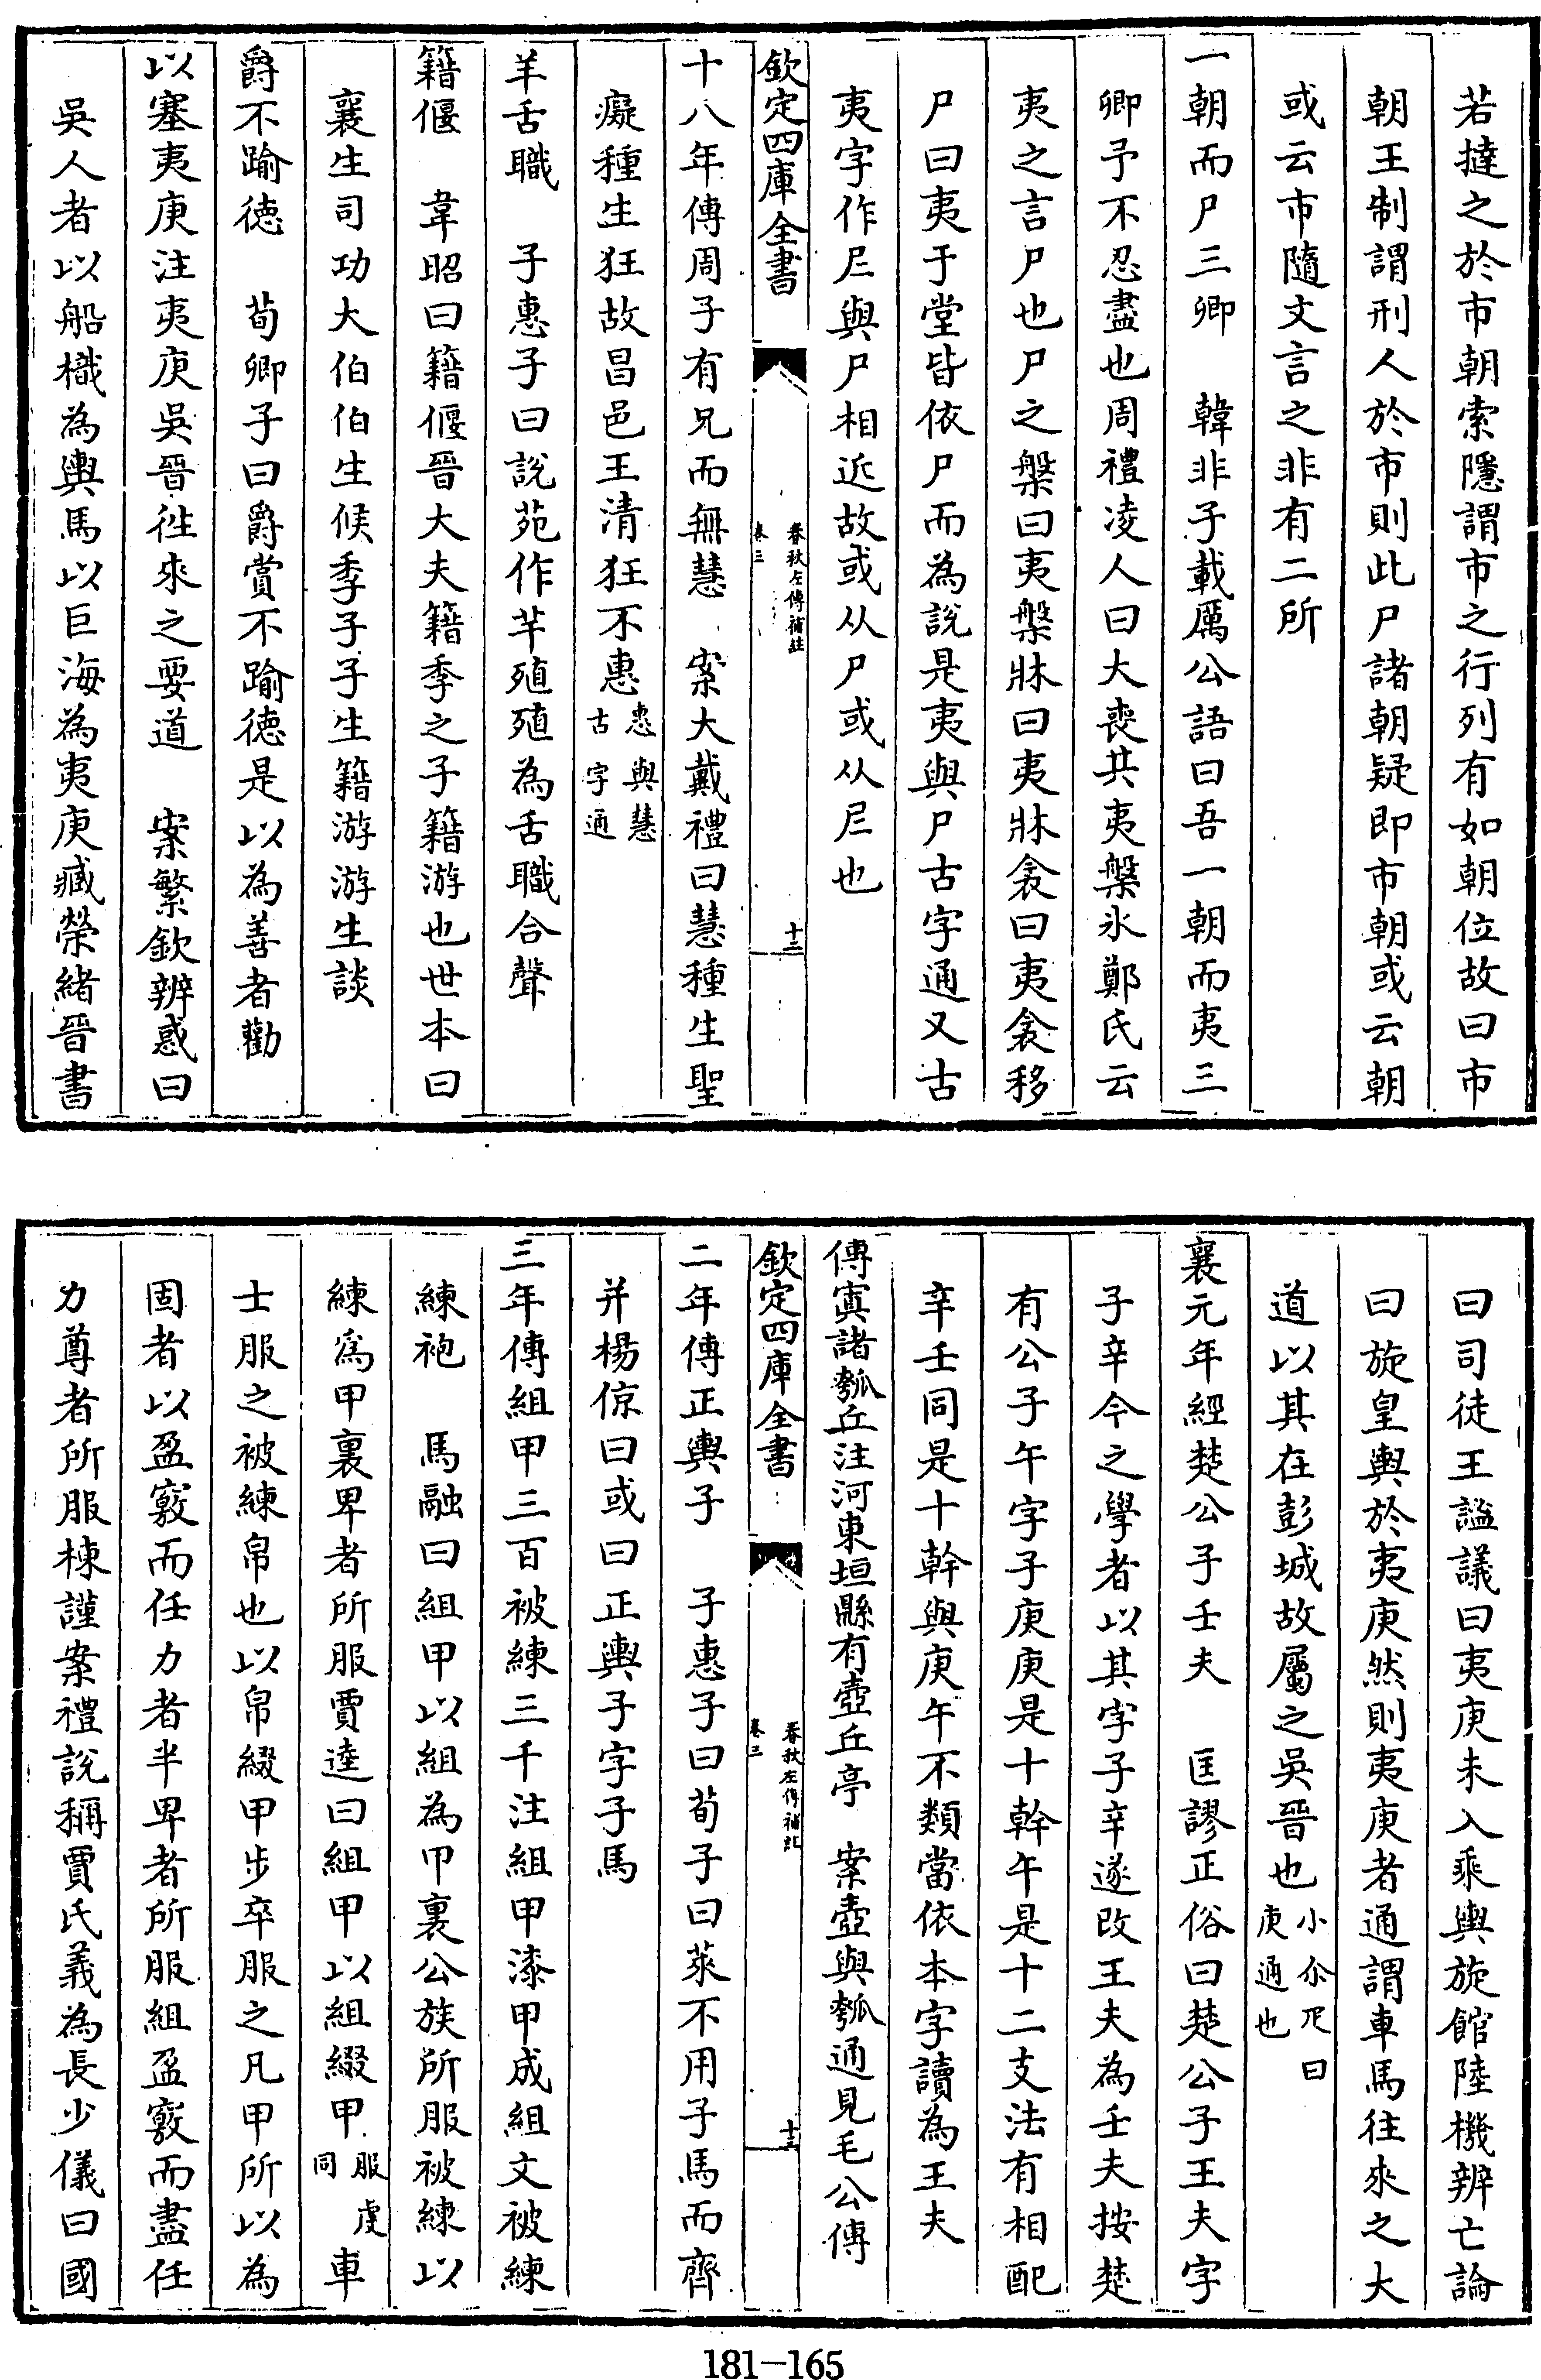 若撻之於市朝索隱謂市之行列有如朝位故曰市
朝王制謂刑人於市則此尸諸朝疑即市朝或云朝
或云市隨文言之非有二所
一朝而尸三卿　韓非子載厲公語曰吾一朝而夷三
卿予不忍盡也周禮凌人曰大喪共夷槃氷鄭氏云
夷之言尸也尸之槃曰夷槃牀曰夷牀衾曰夷衾移
尸曰夷于堂皆依尸而為說是夷與尸古字通又古
夷字作𡰥與尸相近故或从尸或从𡰥也
欽定四庫全書
春秋左傳補註
卷三
十二
十八年傳周子有兄而無慧　案大戴禮曰慧種生聖
癡種生狂故昌邑王清狂不惠惠與慧
古字通
羊舌職　子惠子曰說苑作羊殖殖為舌職合聲
籍偃　韋昭曰籍偃晉大夫籍季之子籍游也世本曰
襄生司功大伯伯生候季子子生籍游游生談
爵不踰徳　荀卿子曰爵賞不踰徳是以為善者勸
以塞夷庚注夷庚吳晉徃來之要道　案繁欽辨惑曰
吳人者以船檝為輿馬以巨海為夷庚臧榮緒晉書
曰司徒王謐議曰夷庚未入乘輿旋館陸機辨亡論
曰旋皇輿於夷庚然則夷庚者通謂車馬往來之大
道以其在彭城故屬之吳晉也小尒疋曰
庚通也
襄元年經楚公子壬夫　匡謬正俗曰楚公子王夫字
子辛今之學者以其字子辛遂改王夫為壬夫按楚
有公子午字子庚庚是十幹午是十二支法有相配
辛壬同是十幹與庚午不類當依本字讀為王夫
傳寘諸瓠丘注河東垣縣有壺丘亭　案壺與瓠通見毛公傳
欽定四庫全書
春秋左傳補註
卷三
十三
二年傳正輿子　子惠子曰荀子曰萊不用子馬而齊
并楊倞曰或曰正輿子字子馬
三年傳組甲三百被練三千注組甲漆甲成組文被練
練袍　馬融曰組甲以組為甲裏公族所服被練以
練為甲裏卑者所服賈逵曰組甲以組綴甲服虔
同車
士服之被練帛也以帛綴甲步卒服之凡甲所以為
固者以盈竅而任力者半卑者所服組盈竅而盡任
力尊者所服棟謹案禮說稱賈氏義為長少儀曰國
181-165